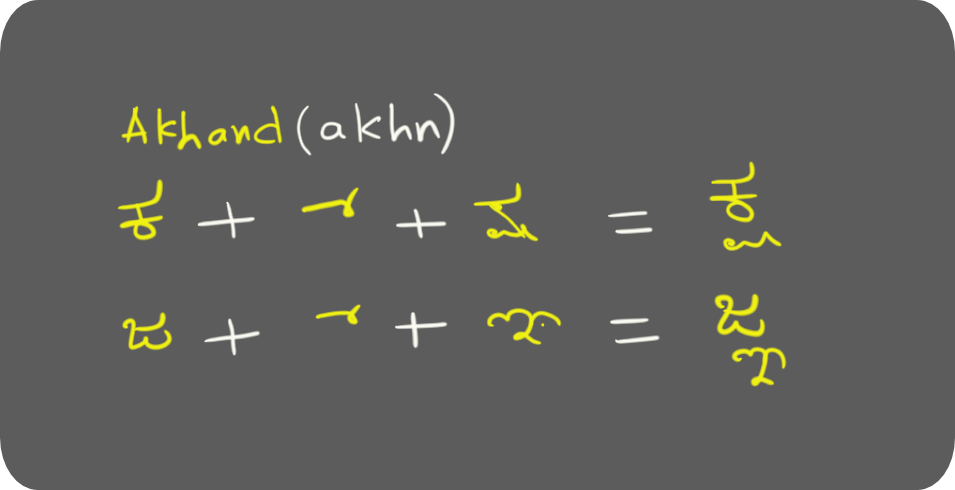 Akhand (akhn)
ಕ + ್ + ಷ = ಕ್ಷ
ಜ + ್ + ಞ = ಜ್ಞ